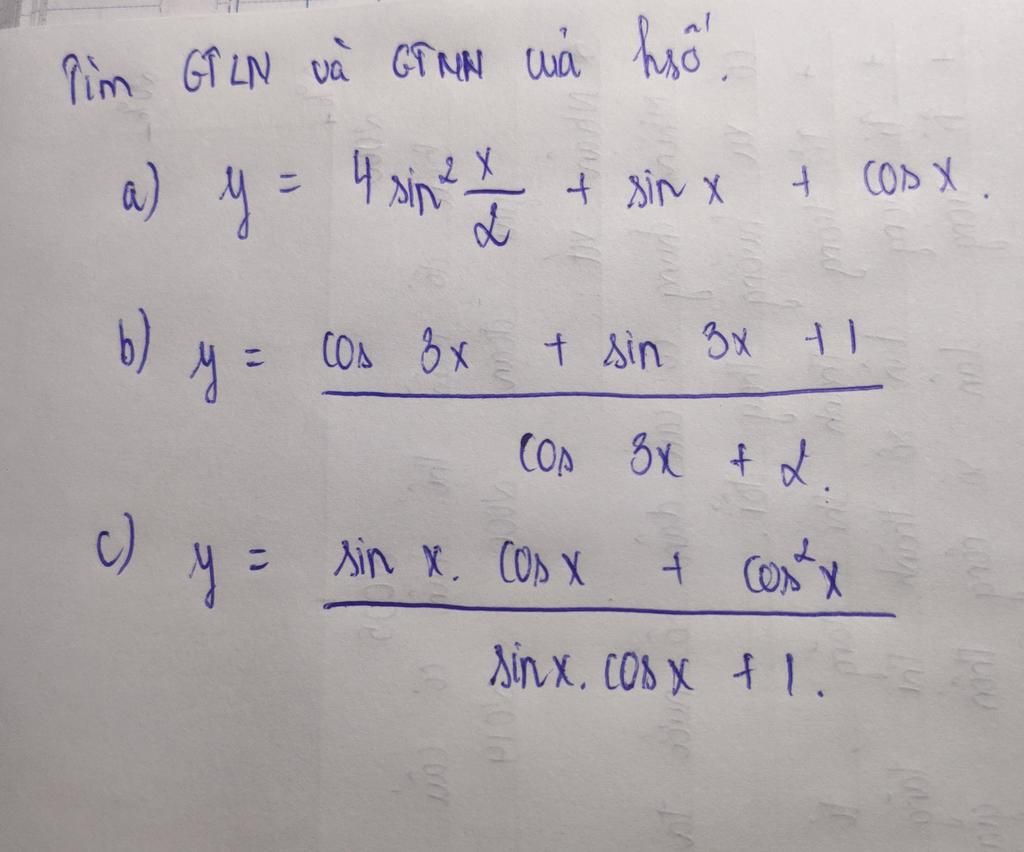 Tìm GTLN và GTNN của hsố.
a) y = 4 sin² x/2 + sin x + cos x.
b) y = cos 3x + sin 3x + 1
cos 3x + 2.
c) y = sin x. cos x + cos² x
sin x. cos x + 1.